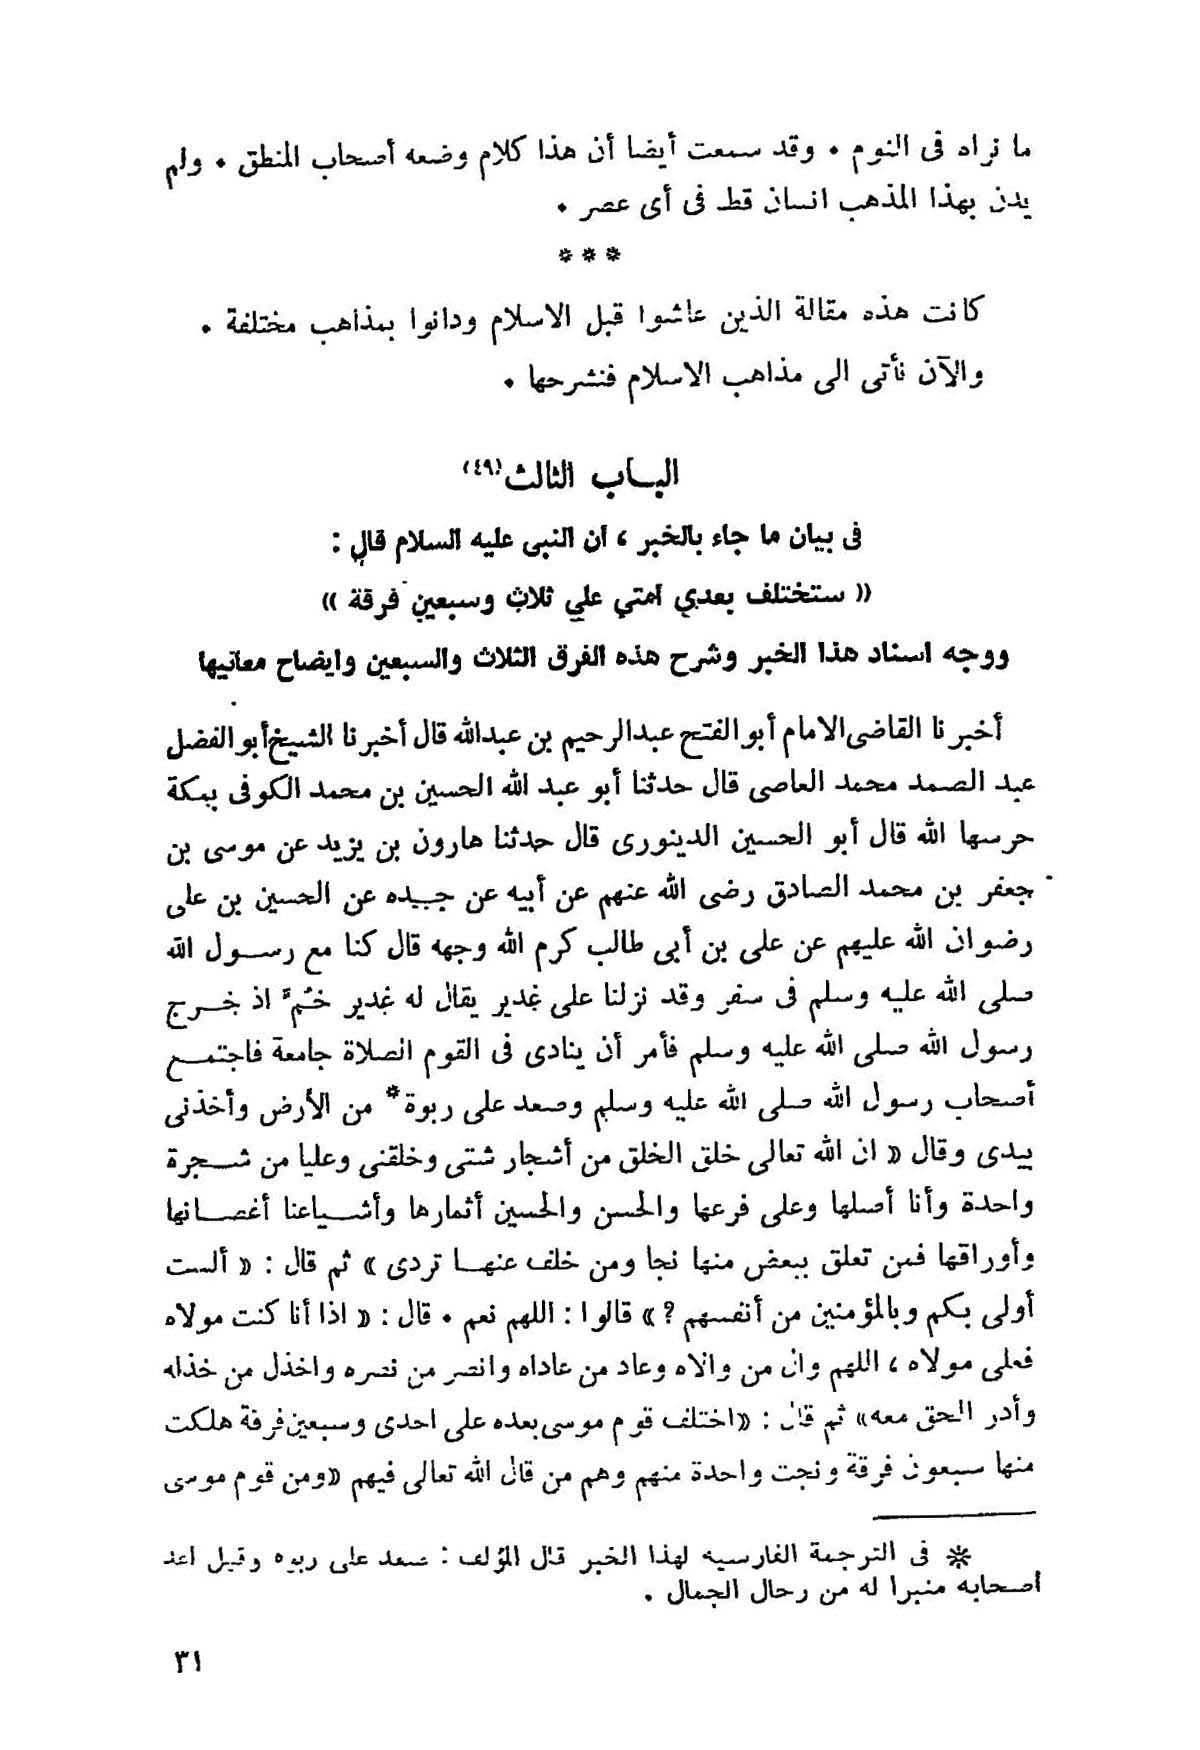 ما نراه فى النوم . وقد سمعت أيضا أن هذا كلام وضعه أصحاب المنطق . ولم
يدن بهذا المذهب انسان قط فى أى عصر .
* * *
كانت هذه مقالة الذين عاشوا قبل الاسلام ودانوا بمذاهب مختلفة .
والآن نأتى الى مذاهب الاسلام فنشرحها .
البـاب الثالث (٤٩)
فى بيان ما جاء بالخبر ، ان النبى عليه السلام قال :
« ستختلف بعدي امتي علي ثلاث وسبعين فرقة »
ووجه اسناد هذا الخبر وشرح هذه الفرق الثلاث والسبعين وايضاح معانيها
أخبرنا القاضى الامام أبو الفتح عبدالرحيم بن عبدالله قال أخبرنا الشيخ أبو الفضل
عبد الصمد محمد العاصى قال حدثنا أبو عبد الله الحسين بن محمد الكوفى بمكة
حرسها الله قال أبو الحسين الدينورى قال حدثنا هارون بن يزيد عن موسى بن
جعفر بن محمد الصادق رضى الله عنهم عن أبيه عن جــده عن الحسين بن على
رضوان الله عليهم عن على بن أبى طالب كرم الله وجهه قال كنا مع رســول الله
صلى الله عليه وسلم فى سفر وقد نزلنا على غدير يقال له غدير خُمّ اذ خــرج
رسول الله صلى الله عليه وسلم فأمر أن ينادى فى القوم الصلاة جامعة فاجتمــع
أصحاب رسول الله صلى الله عليه وسلم وصعد على ربوة* من الأرض وأخذنى
بيدى وقال « ان الله تعالى خلق الخلق من أشجار شتى وخلقنى وعليا من شــجرة
واحدة وأنا أصلها وعلى فرعها والحسن والحسين أثمارها وأشــياعنا أغصــانها
وأوراقها فمن تعلق ببعض منها نجا ومن خلف عنهــا تردى » ثم قال : « ألست
أولى بكم وبالمؤمنين من أنفسهم ؟ » قالوا : اللهم نعم . قال : « اذا أنا كنت مولاه
فعلى مولاه ، اللهم وال من والاه وعاد من عاداه وانصر من نصره واخذل من خذله
وأدر الحق معه» ثم قال : «اختلف قوم موسى بعده على احدى وسبعين فرقة هلكت
منها سبعون فرقة ونجت واحدة منهم وهم من قال الله تعالى فيهم «ومن قوم موسى
* فى الترجمة الفارسيه لهذا الخبر قال المؤلف : صعد على ربوه وقيل اعد
أصحابه منبرا له من رحال الجمال .
٣١